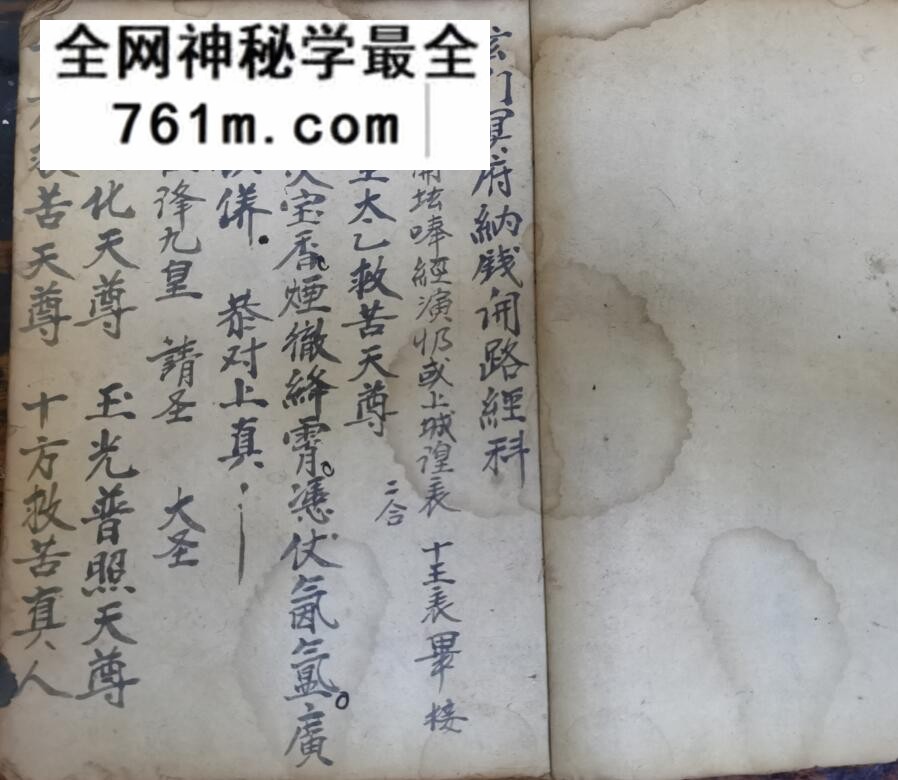 全网神秘学最全
761m.com
玄门冥府納錢開路經科
開坛唪經演忏或上城隍表 十王表畢 接
太乙救苦天尊 二合
宝香煙徹絳霄。憑仗氤氲。廣
儀。 恭对上真
九皇 請圣 大圣
化天尊 玉光普照天尊
苦天尊 十方救苦真人